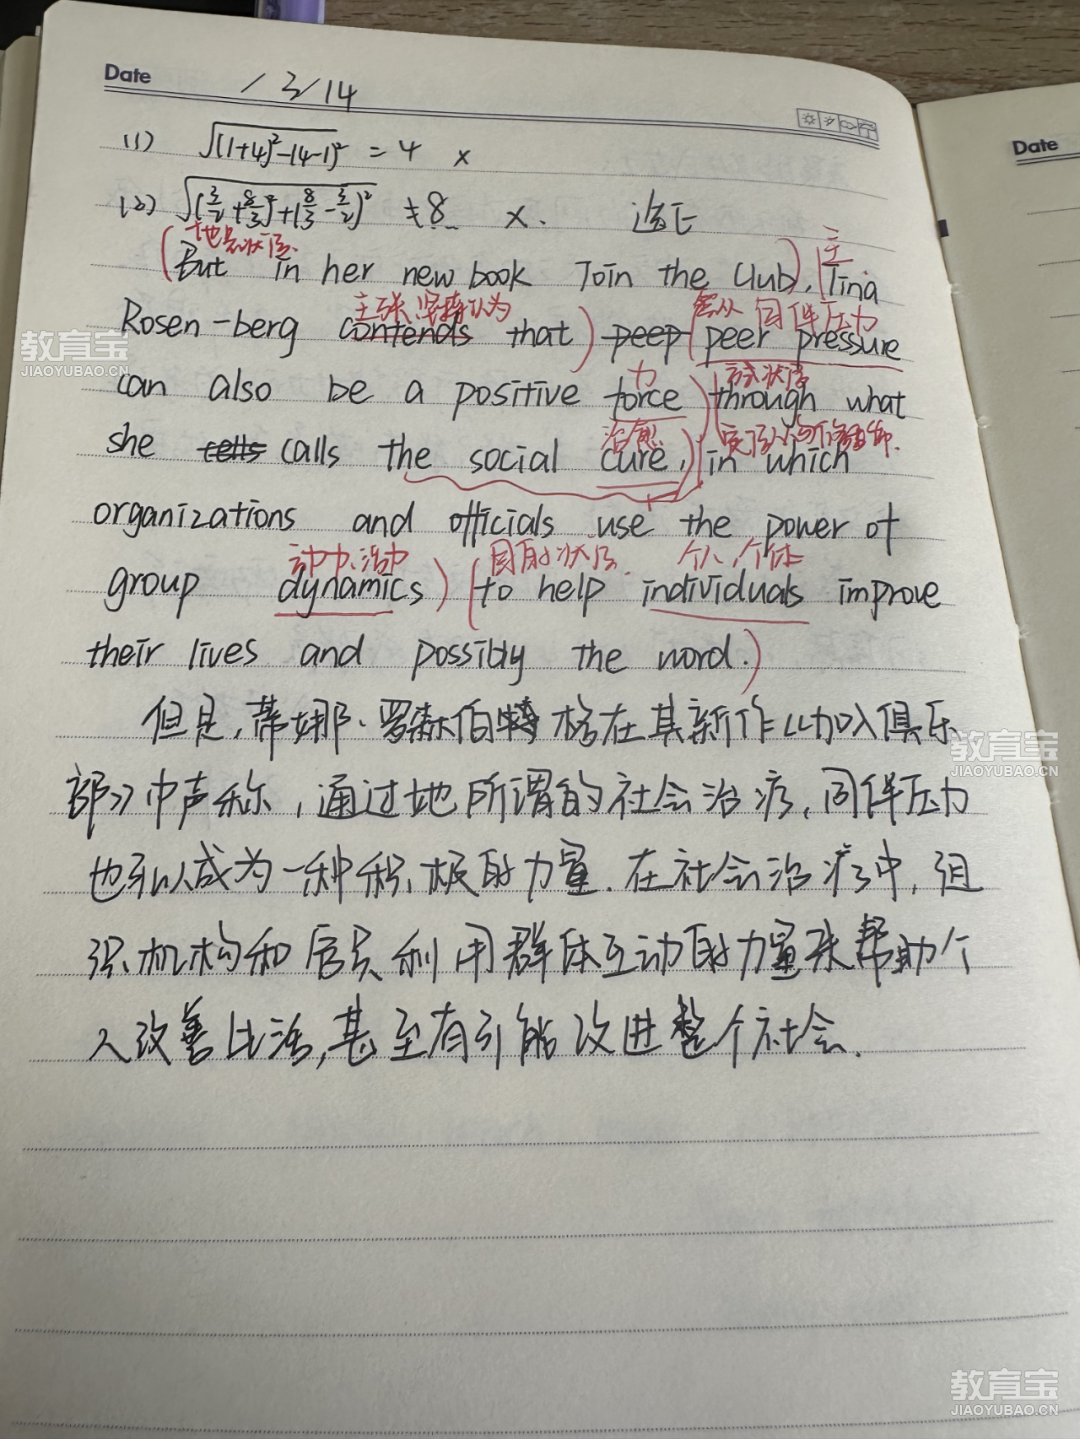 Date
/ 3 / 14
Date
(1) √(1+4)²-(4-1)² = 4 ×
(2) √(3/2+8/3)²+(8/3-3/2)² ≠8 ×.
地点状语.
主
(But in her new book Join the Club), (Tina
主张,坚持认为
宾从 同伴压力
Rosen-berg contends that) peep (peer pressure
力
方式状语
can also be a positive force) (through what
治愈
she tells calls the social cure,) (in which
organizations and officials use the power of
目的状语.
个人,个体
group dynamics) (to help individuals improve
their lives and possibly the word.)
但是,蒂娜·罗森伯格在其新作《加入俱乐
部》中声称,通过她所谓的社会治疗,同伴压力
也可以成为一种积极的力量.在社会治疗中,组
织机构和官员利用群体互动的力量来帮助个
人改善生活,甚至有可能改进整个社会.
教育宝
JIAOYUBAO.CN
教育宝
JIAOYUBAO.CN
教育宝
JIAOYUBAO.CN